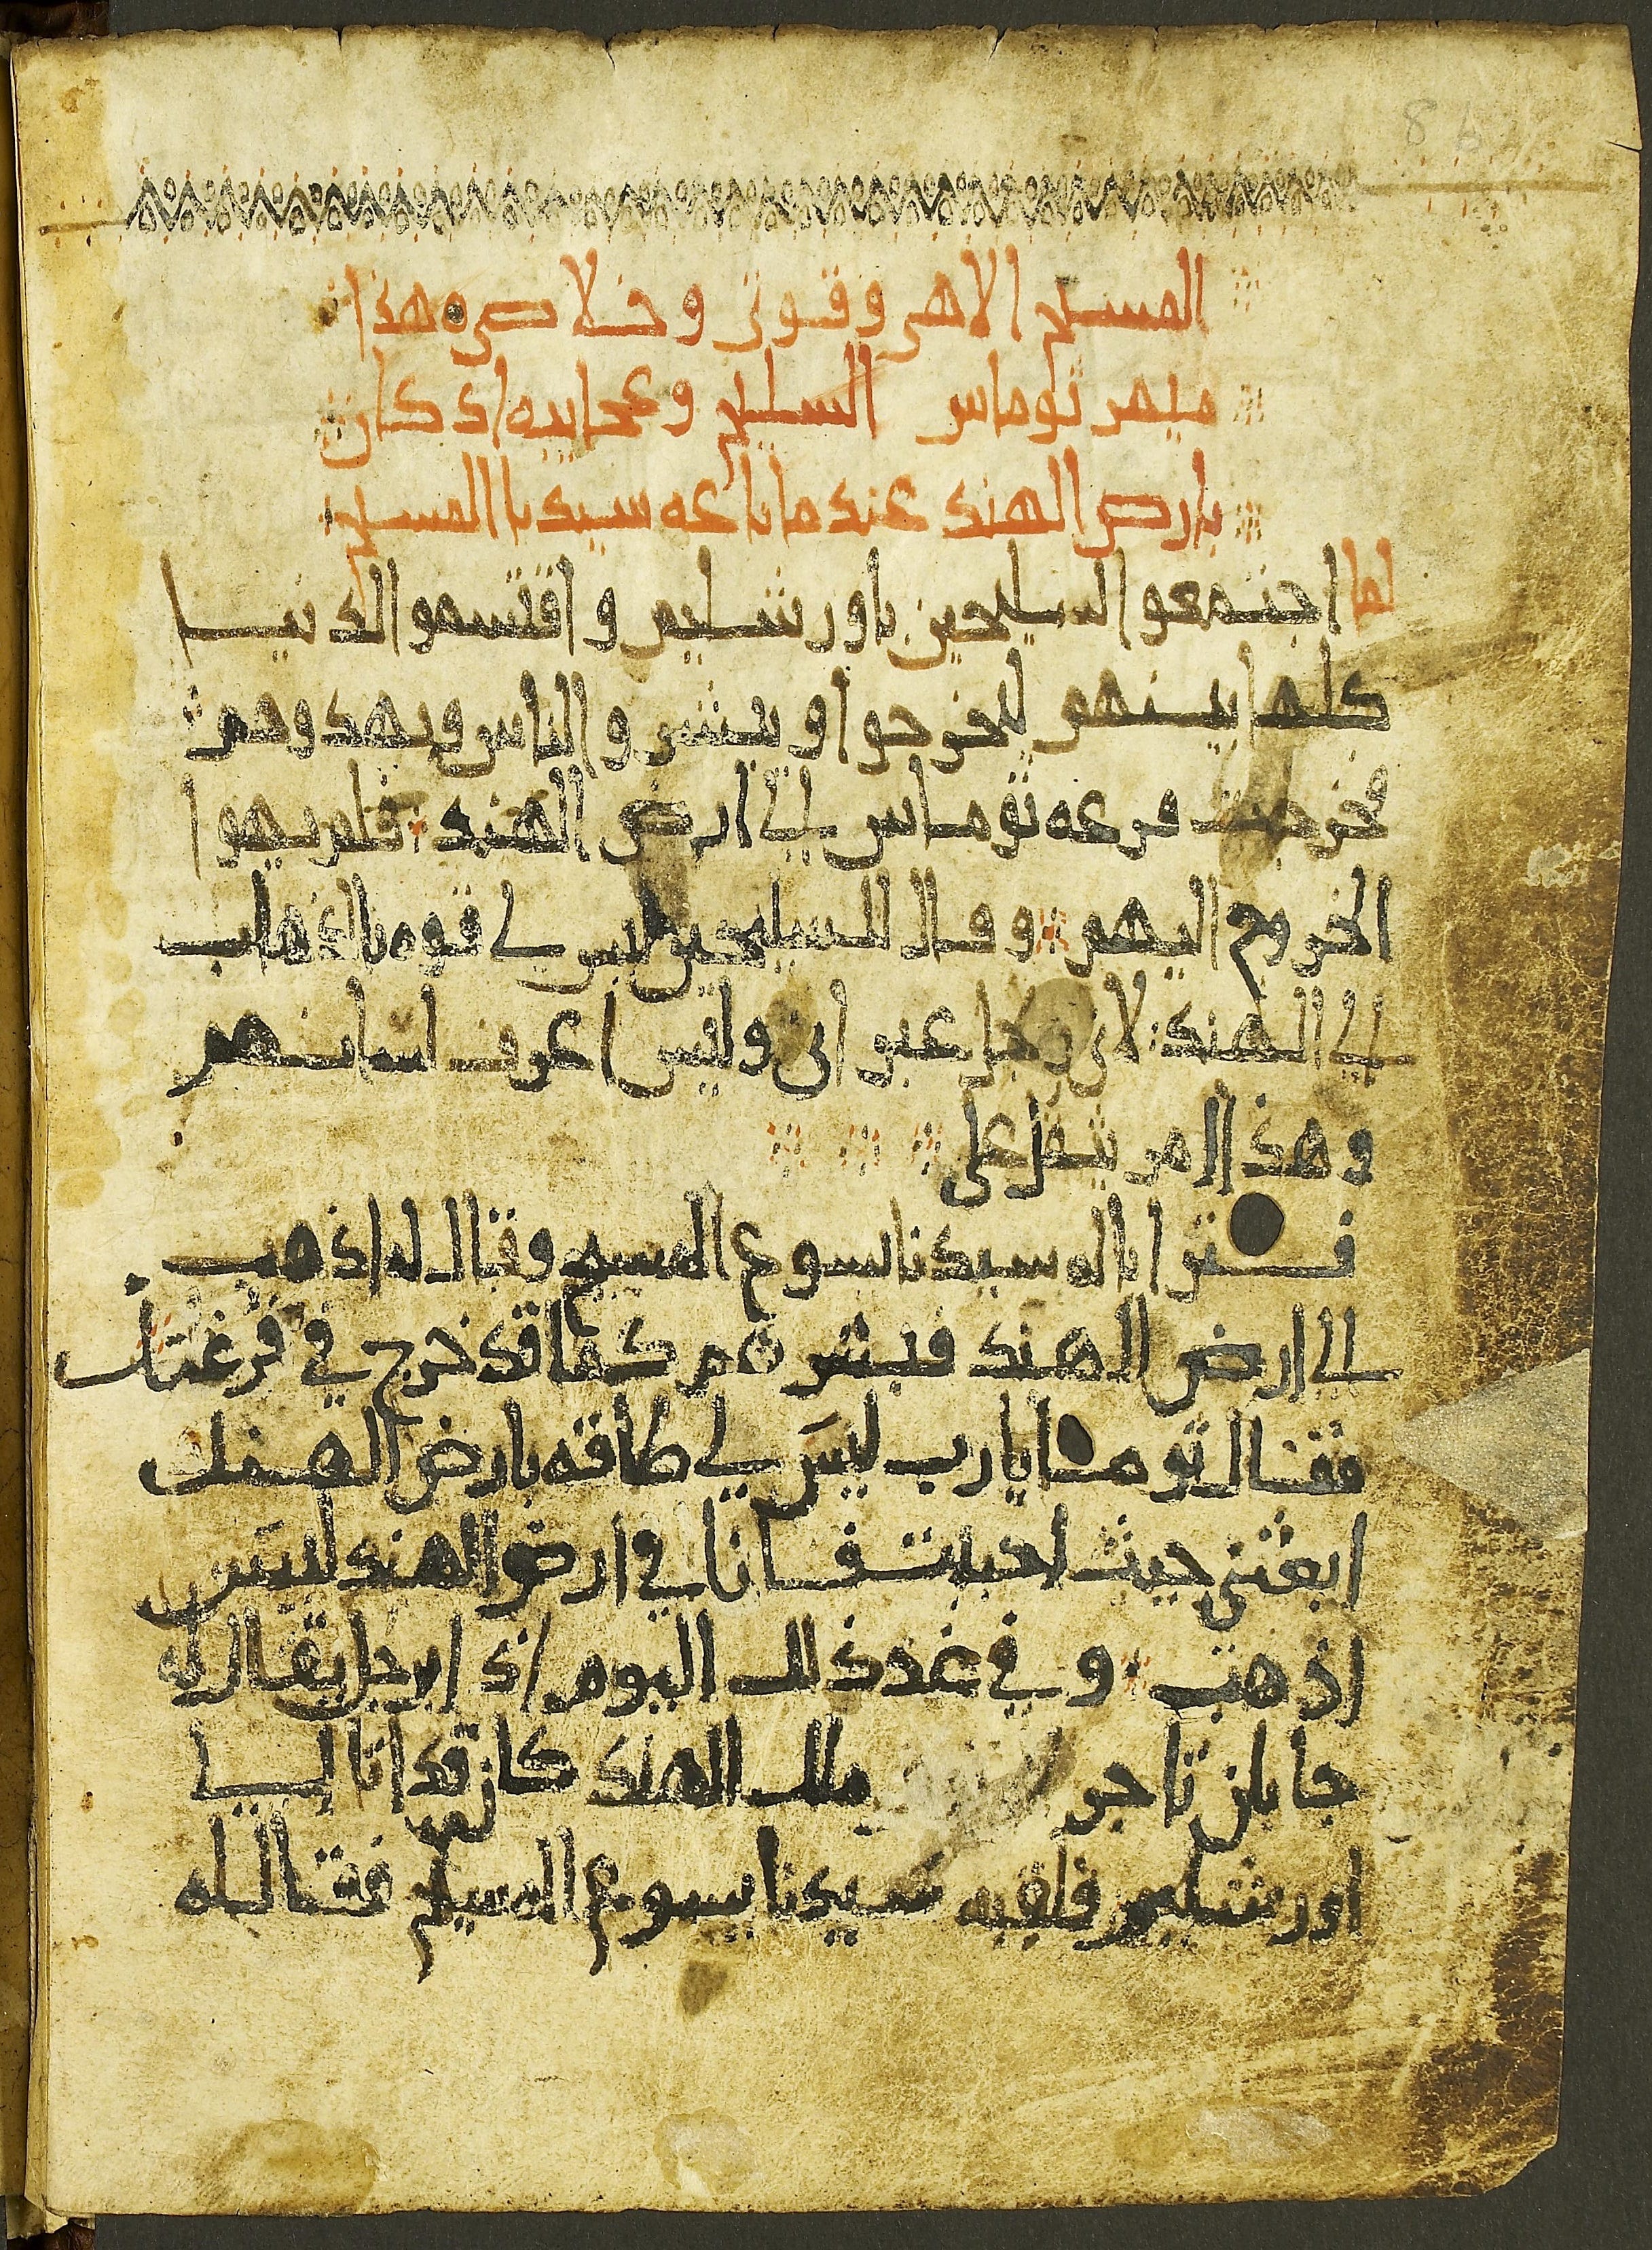 8
المسيح الاهي وقوتي وخلاصي هذا
ميمر توماس السليح وعجايبه اذ كان
بارض الهند عندما باعه سيدنا المسيح
لما اجتمعو السليحين باورشليم واقتسمو الدنيا
كلها بينهم ليخرجوا ويبشرو الناس ويهدوهم
فخرجت قرعه توماس الي ارض الهند فلم يهوا
الخروج اليهم وقال للسليحين ليس لي قوه بالذهاب
الي الهند لاني رجل عبراني وليس اعرف لسانهم
وهذا الامر يثقل علي
فتوا باله سيدنا يسوع المسيح وقال له اذهب
الي ارض الهند فبشرهم كما قد خرج في قرعتك
فقال توما يا رب ليس لي طاقه بارض الهند
ابعثني حيث احببت فانا في ارض الهند ليس
اذهب وفي غد ذلك اليوم اذا برجل يقال له
جابان تاجر ملك الهند كان قد اتا الي
اورشليم فلقيه سيدنا يسوع المسيح فقال له